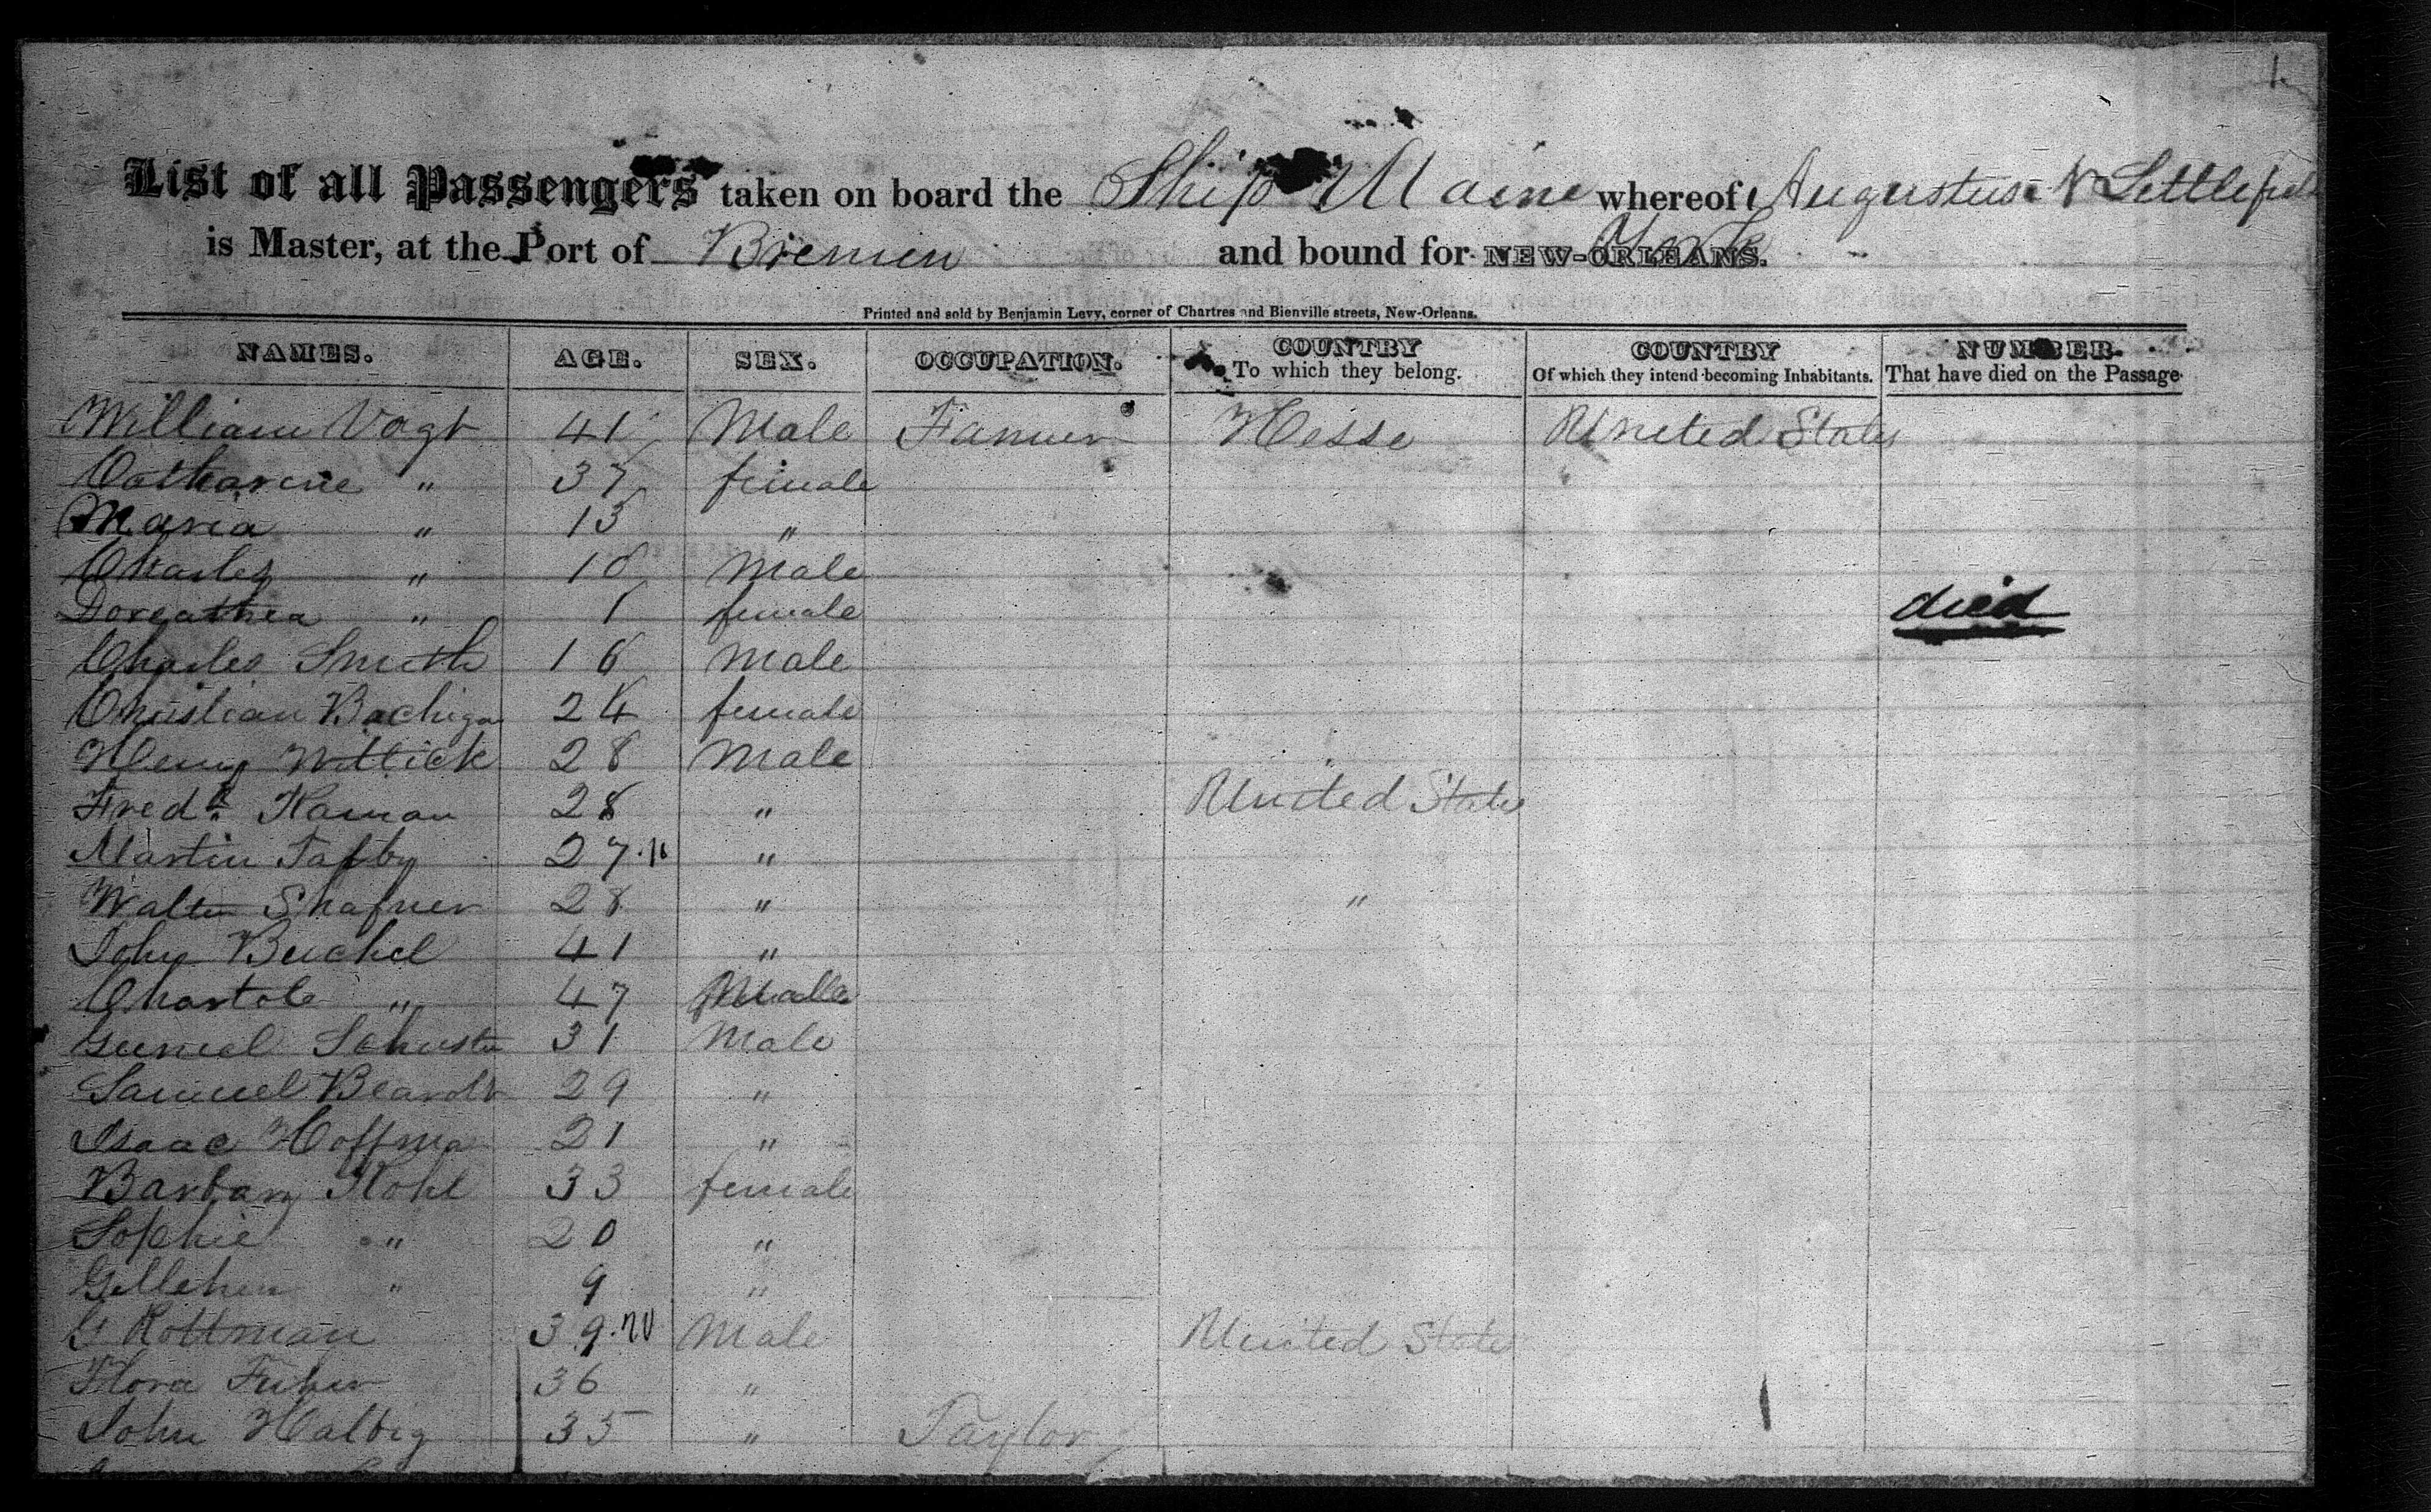 1
List of all Passengers taken on board the Ship Maine whereof Augustus N Littlefield
is Master, at the Port of Bremen and bound for NEW-ORLEANS. York
Printed and sold by Benjamin Levy, corner of Chartres and Bienville streets, New-Orleans.
NAMES. AGE. SEX. OCCUPATION. COUNTRY To which they belong. COUNTRY Of which they intend becoming Inhabitants. NUMBER That have died on the Passage
William Vogt 41 Male Farmer Hesse United States
Catharine " 37 female
Maria " 13 "
Charles " 10 Male
Doreathea " 1 female died
Charles Smith 16 Male
Christian 24 female
Henry Wittick 28 Male
Fredk Haman 28 " United States
Martin 27.10 "
Walter Shafner 28 " "
John Buchel 41 "
Chartole " 47
Schuster 31 Male
Samuel 29 "
Isaac Hoffma 21 "
Barbary Kohl 33 female
Sophie " 20 "
" 9 "
G Rottman 39.20 Male United States
Flora 36 "
John Halbig 35 " Taylor